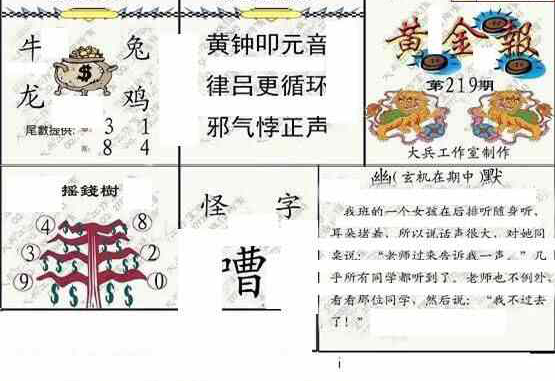 牛 兔
龙 鸡
尾數提供: 3 1
8 4
黄钟叩元音
律吕更循环
邪气悖正声
黄金報
第219期
大兵工作室制作
摇錢樹
4 8
3 2
9 0
怪 字
嘈
幽(玄机在期中)默
我班的一个女孩在后排听随身听,
耳朵堵着, 所以说话声很大, 对她同
桌说: “老师过来告诉我一声。”几
乎所有同学都听到了。老师也不例外,
看看那位同学, 然后说: “我不过去
了!”
i